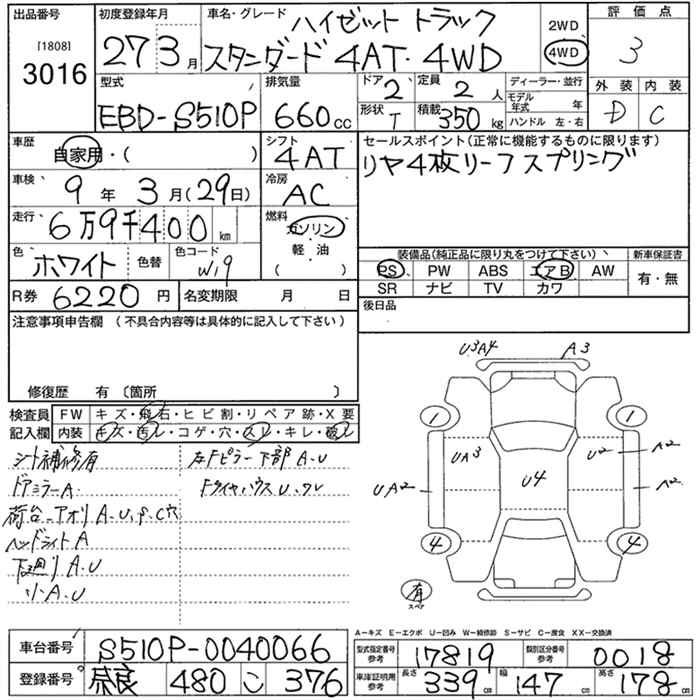 出品番号 初度登録年月 車名・グレード ハイゼット トラック 2WD 評価点
[1808] 3016 27 3月 スタンダード 4AT・4WD 4WD 3
型式 排気量 ドア 定員 ディーラー・並行 外装 内装
EBD-S510P 660cc 2 2人 モデル年式 年 D C
形状 T 積載 350kg ハンドル 左・右
車歴 シフト セールスポイント(正常に機能するものに限ります)
自家用・( ) 4AT リヤ4枚リーフスプリング
車検 冷房
9年 3月(29日) AC
走行 燃料
6万9千400km ガソリン
軽・油
( )
色 ホワイト 色替 色コード W19
装備品(純正品に限り丸をつけて下さい) 新車保証書
PS PW ABS エアB AW 有・無
SR ナビ TV カワ
R券 6220円 名変期限 月 日 後日品
注意事項申告欄 (不具合内容等は具体的に記入して下さい)
修復歴 有 〔箇所 〕
検査員 FW キズ・飛石・ヒビ割・リペア跡・X要
記入欄 内装 キズ・汚レ・コゲ・穴・スレ・キレ・破レ
シート補修有 左Fピラー下部A.U
ドアミラーA. タイヤハウスU.ワレ
荷台_アオリ A.U.P.C穴
ヘッドライトA
下廻りA.U
小A.U
U3A4 A3
1 1
UA3 U2 A2
UA2 U4 A2
4 4
有
スペア
A-キズ E-エクボ U-凹み W-補修跡 S-サビ C-腐食 XX-交換済
車台番号 S510P-0040066 型式指定番号 参考 17819 類別区分番号 参考 0018
登録番号 奈良 480 こ 376 車庫証明用 参考 長さ 339cm 幅 147cm 高さ 178cm